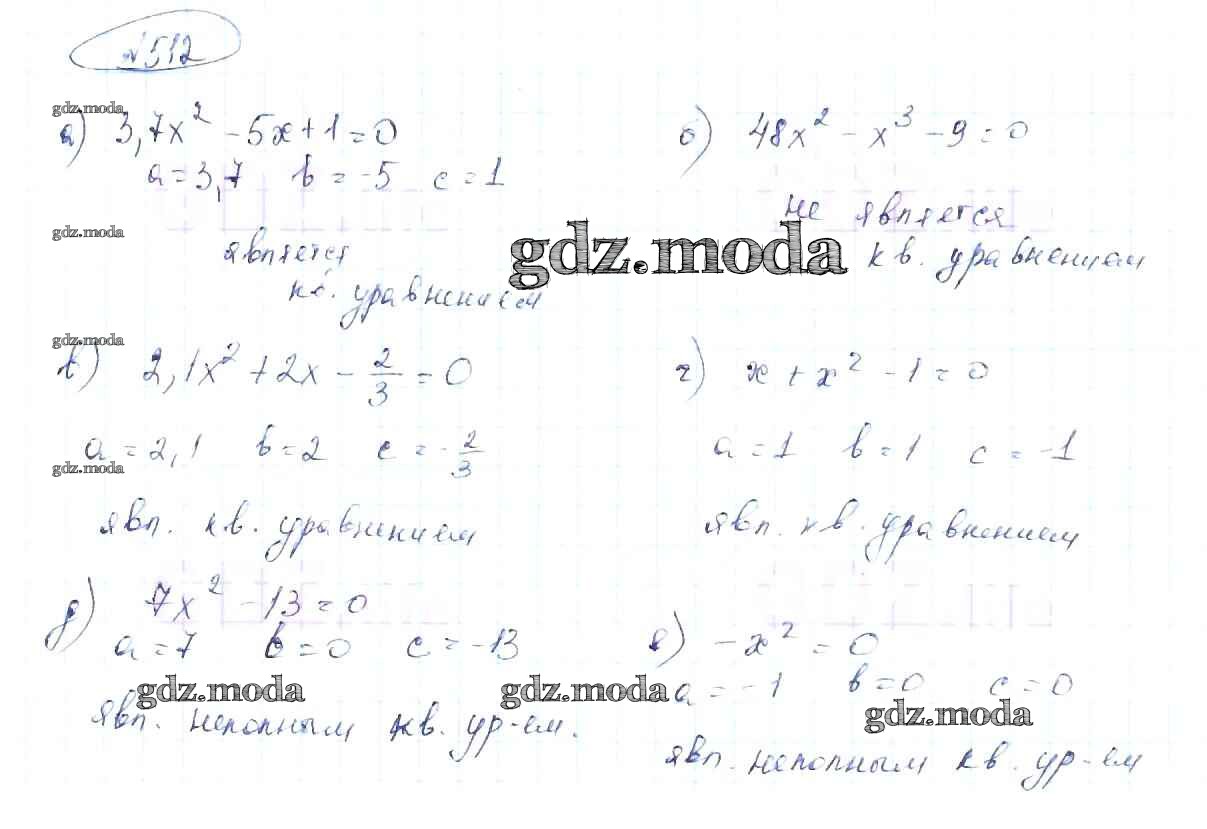 №512
gdz.moda
а) 3,7x² - 5x + 1 = 0
a = 3,7 b = -5 c = 1
gdz.moda
является
кв. уравнением
б) 48x² - x³ - 9 = 0
не является
gdz.moda
кв. уравнением
gdz.moda
в) 2,1x² + 2x - 2/3 = 0
a = 2,1 b = 2 c = -2/3
gdz.moda
явл. кв. уравнением
г) x + x² - 1 = 0
a = 1 b = 1 c = -1
явл. кв. уравнением
д) 7x² - 13 = 0
a = 7 b = 0 c = -13
gdz.moda
явл. неполным кв. ур-ем.
gdz.moda
е) -x² = 0
a = -1 b = 0 c = 0
gdz.moda
явл. неполным кв. ур-ем